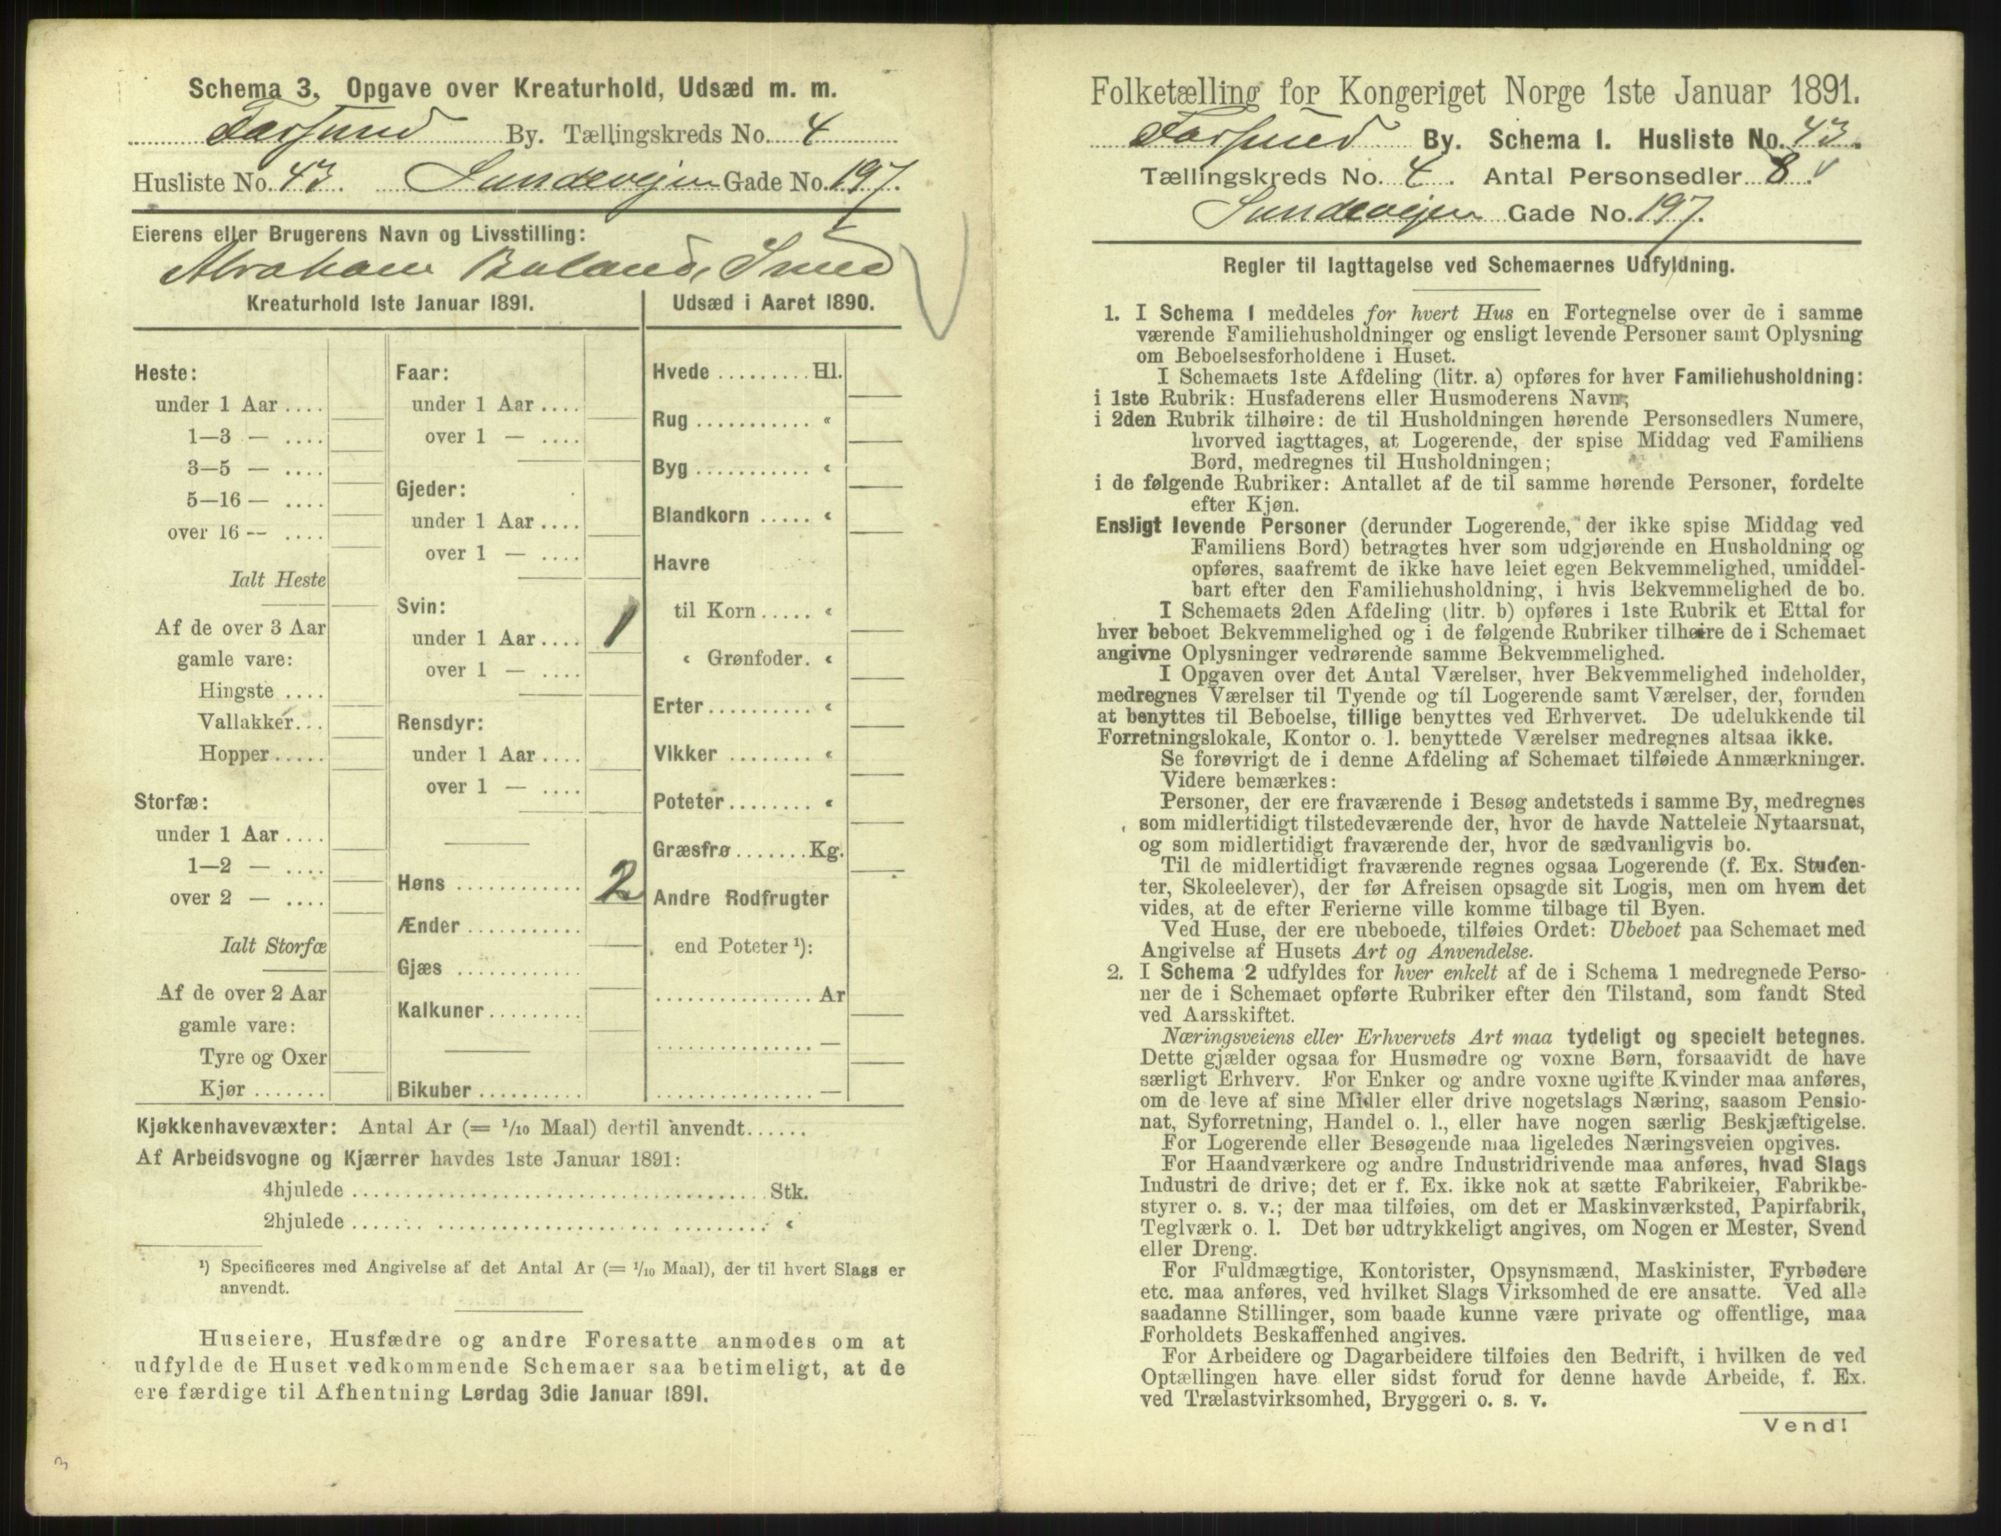 Schema 3. Opgave over Kreaturhold, Udsæd m. m.
Farsund By. Tællingskreds No. 4
Husliste No. 43. Sundeveien Gade No. 197.
Eierens eller Brugerens Navn og Livsstilling:
Abraham Buland, Smed
Kreaturhold 1ste Januar 1891.
Heste:
under 1 Aar ....
1—3 — ....
3—5 — ....
5—16 — ....
over 16 -- ....
Ialt Heste
Af de over 3 Aar
gamle vare:
Hingste ....
Vallakker...
Hopper.....
Storfæ:
under 1 Aar ....
1—2 — ....
over 2 — ....
Ialt Storfæ
Af de over 2 Aar
gamle vare:
Tyre og Oxer
Kjør .......
Faar:
under 1 Aar ....
over 1 — ....
Gjeder:
under 1 Aar ....
over 1 — ....
Svin:
under 1 Aar .... 1
over 1 — ....
Rensdyr:
under 1 Aar ....
over 1 — ....
Høns ............ 2
Ænder ...........
Gjæs ............
Kalkuner.........
Bikuber ..........
Udsæd i Aaret 1890.
Hvede ......... Hl.
Rug ........... «
Byg ........... «
Blandkorn ..... «
Havre
til Korn ..... «
« Grønfoder. «
Erter.......... «
Vikker ........ «
Poteter........ «
Græsfrø ....... Kg.
Andre Rodfrugter
end Poteter ¹):
............... Ar
............... —
............... —
Kjøkkenhavevæxter: Antal Ar (= 1/10 Maal) dertil anvendt......
Af Arbeidsvogne og Kjærrer havdes 1ste Januar 1891:
4hjulede ..................................... Stk.
2hjulede ..................................... «
¹) Specificeres med Angivelse af det Antal Ar (= 1/10 Maal), der til hvert Slags er
anvendt.
Huseiere, Husfædre og andre Foresatte anmodes om at
udfylde de Huset vedkommende Schemaer saa betimeligt, at de
ere færdige til Afhentning Lørdag 3die Januar 1891.
3
Folketælling for Kongeriget Norge 1ste Januar 1891.
Farsund By. Schema I. Husliste No. 43.
Tællingskreds No. 4. Antal Personsedler 8. v
Sundeveien Gade No. 197.
Regler til Iagttagelse ved Schemaernes Udfyldning.
1. I Schema 1 meddeles for hvert Hus en Fortegnelse over de i samme
værende Familiehusholdninger og ensligt levende Personer samt Oplysning
om Beboelsesforholdene i Huset.
I Schemaets 1ste Afdeling (litr. a) opføres for hver Familiehusholdning:
i 1ste Rubrik: Husfaderens eller Husmoderens Navn;
i 2den Rubrik tilhøire: de til Husholdningen hørende Personsedlers Numere,
hvorved iagttages, at Logerende, der spise Middag ved Familiens
Bord, medregnes til Husholdningen;
i de følgende Rubriker: Antallet af de til samme hørende Personer, fordelte
efter Kjøn.
Ensligt levende Personer (derunder Logerende, der ikke spise Middag ved
Familiens Bord) betragtes hver som udgjørende en Husholdning og
opføres, saafremt de ikke have leiet egen Bekvemmelighed, umiddel-
bart efter den Familiehusholdning, i hvis Bekvemmelighed de bo.
I Schemaets 2den Afdeling (litr. b) opføres i 1ste Rubrik et Ettal for
hver beboet Bekvemmelighed og i de følgende Rubriker tilhøire de i Schemaet
angivne Oplysninger vedrørende samme Bekvemmelighed.
I Opgaven over det Antal Værelser, hver Bekvemmelighed indeholder,
medregnes Værelser til Tyende og til Logerende samt Værelser, der, foruden
at benyttes til Beboelse, tillige benyttes ved Erhvervet. De udelukkende til
Forretningslokale, Kontor o. l. benyttede Værelser medregnes altsaa ikke.
Se forøvrigt de i denne Afdeling af Schemaet tilføiede Anmærkninger.
Videre bemærkes:
Personer, der ere fraværende i Besøg andetsteds i samme By, medregnes
som midlertidigt tilstedeværende der, hvor de havde Natteleie Nytaarsnat,
og som midlertidigt fraværende der, hvor de sædvanligvis bo.
Til de midlertidigt fraværende regnes ogsaa Logerende (f. Ex. Studen-
ter, Skoleelever), der før Afreisen opsagde sit Logis, men om hvem det
vides, at de efter Ferierne ville komme tilbage til Byen.
Ved Huse, der ere ubeboede, tilføies Ordet: Ubeboet paa Schemaet med
Angivelse af Husets Art og Anvendelse.
2. I Schema 2 udfyldes for hver enkelt af de i Schema 1 medregnede Perso-
ner de i Schemaet opførte Rubriker efter den Tilstand, som fandt Sted
ved Aarsskiftet.
Næringsveiens eller Erhvervets Art maa tydeligt og specielt betegnes.
Dette gjælder ogsaa for Husmødre og voxne Børn, forsaavidt de have
særligt Erhverv. For Enker og andre voxne ugifte Kvinder maa anføres,
om de leve af sine Midler eller drive nogetslags Næring, saasom Pensio-
nat, Syforretning, Handel o. l., eller have nogen særlig Beskjæftigelse.
For Logerende eller Besøgende maa ligeledes Næringsveien opgives.
For Haandværkere og andre Industridrivende maa anføres, hvad Slags
Industri de drive; det er f. Ex. ikke nok at sætte Fabrikeier, Fabrikbe-
styrer o. s. v.; der maa tilføies, om det er Maskinværksted, Papirfabrik,
Teglværk o. l. Det bør udtrykkeligt angives, om Nogen er Mester, Svend
eller Dreng.
For Fuldmægtige, Kontorister, Opsynsmænd, Maskinister, Fyrbødere
etc. maa anføres, ved hvilket Slags Virksomhed de ere ansatte. Ved alle
saadanne Stillinger, som baade kunne være private og offentlige, maa
Forholdets Beskaffenhed angives.
For Arbeidere og Dagarbeidere tilføies den Bedrift, i hvilken de ved
Optællingen have eller sidst forud for denne havde Arbeide, f. Ex.
ved Trælastvirksomhed, Bryggeri o. s. v.
Vend!